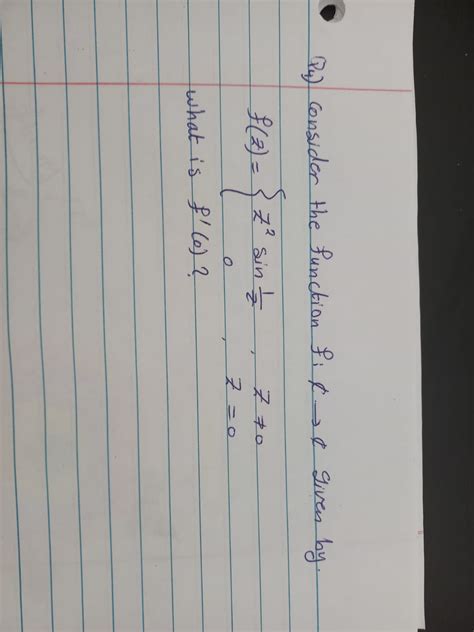 Q4) Consider the function f: ₵ → ₵ given by.
f(z) = { z² sin 1/z , z ≠ 0
0 , z = 0
what is f'(0)?